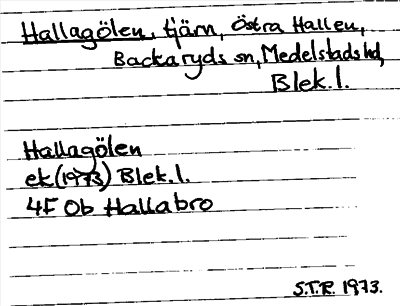 Hallagölen, tjärn, Östra Hallen,
Backaryds sn, Medelstads hd,
Blek. l.
Hallagölen
ek (1973) Blek. l.
4F 0b Hallabro
S.T.R. 1973.